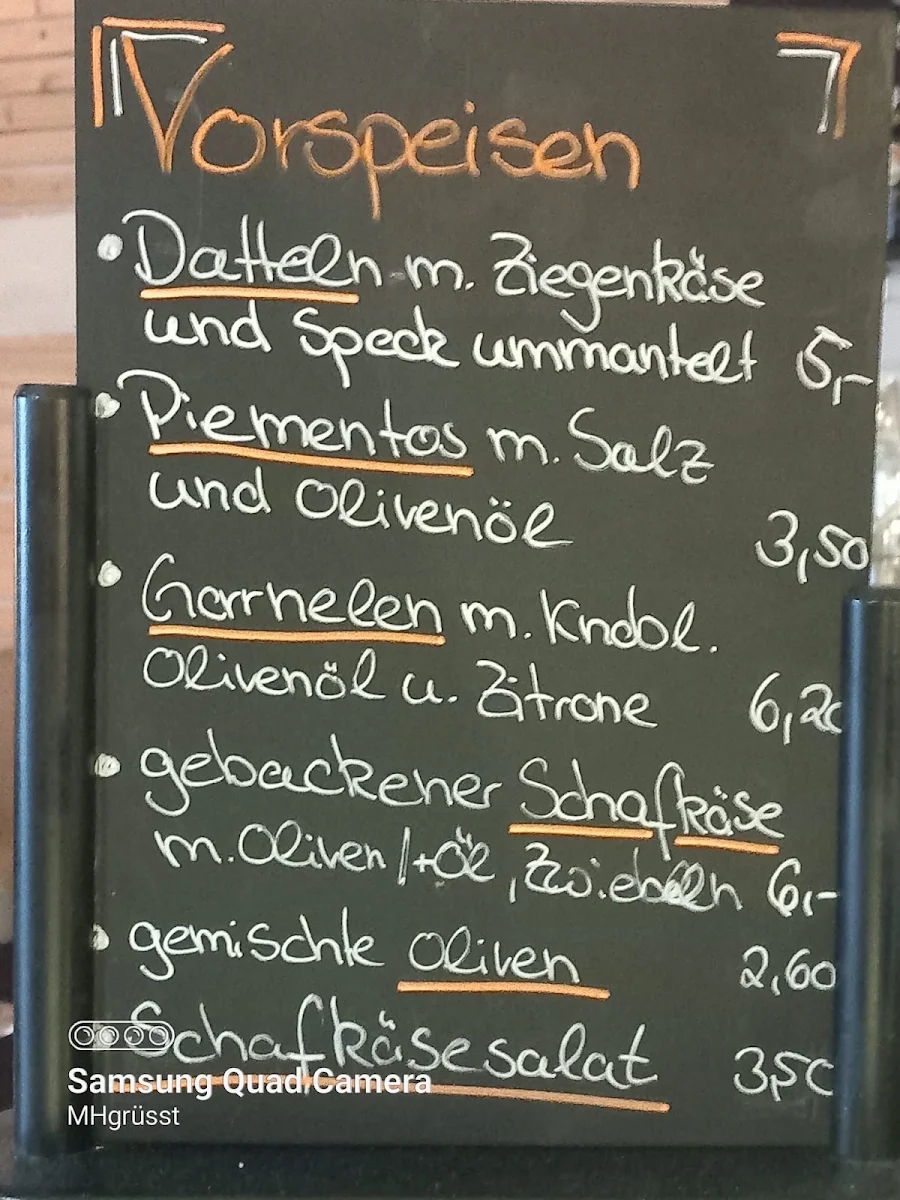 Vorspeisen
• Datteln m. Ziegenkäse
und Speck ummantelt 5,-
• Piementos m. Salz
und Olivenöl 3,50
• Garnelen m. Kndbl.
Olivenöl u. Zitrone 6,20
• gebackener Schafkäse
m. Oliven/+Öl, Zwiebeln 6,-
• gemischte Oliven 2,60
Schafkäsesalat 3,50
Samsung Quad Camera
MHgrüsst